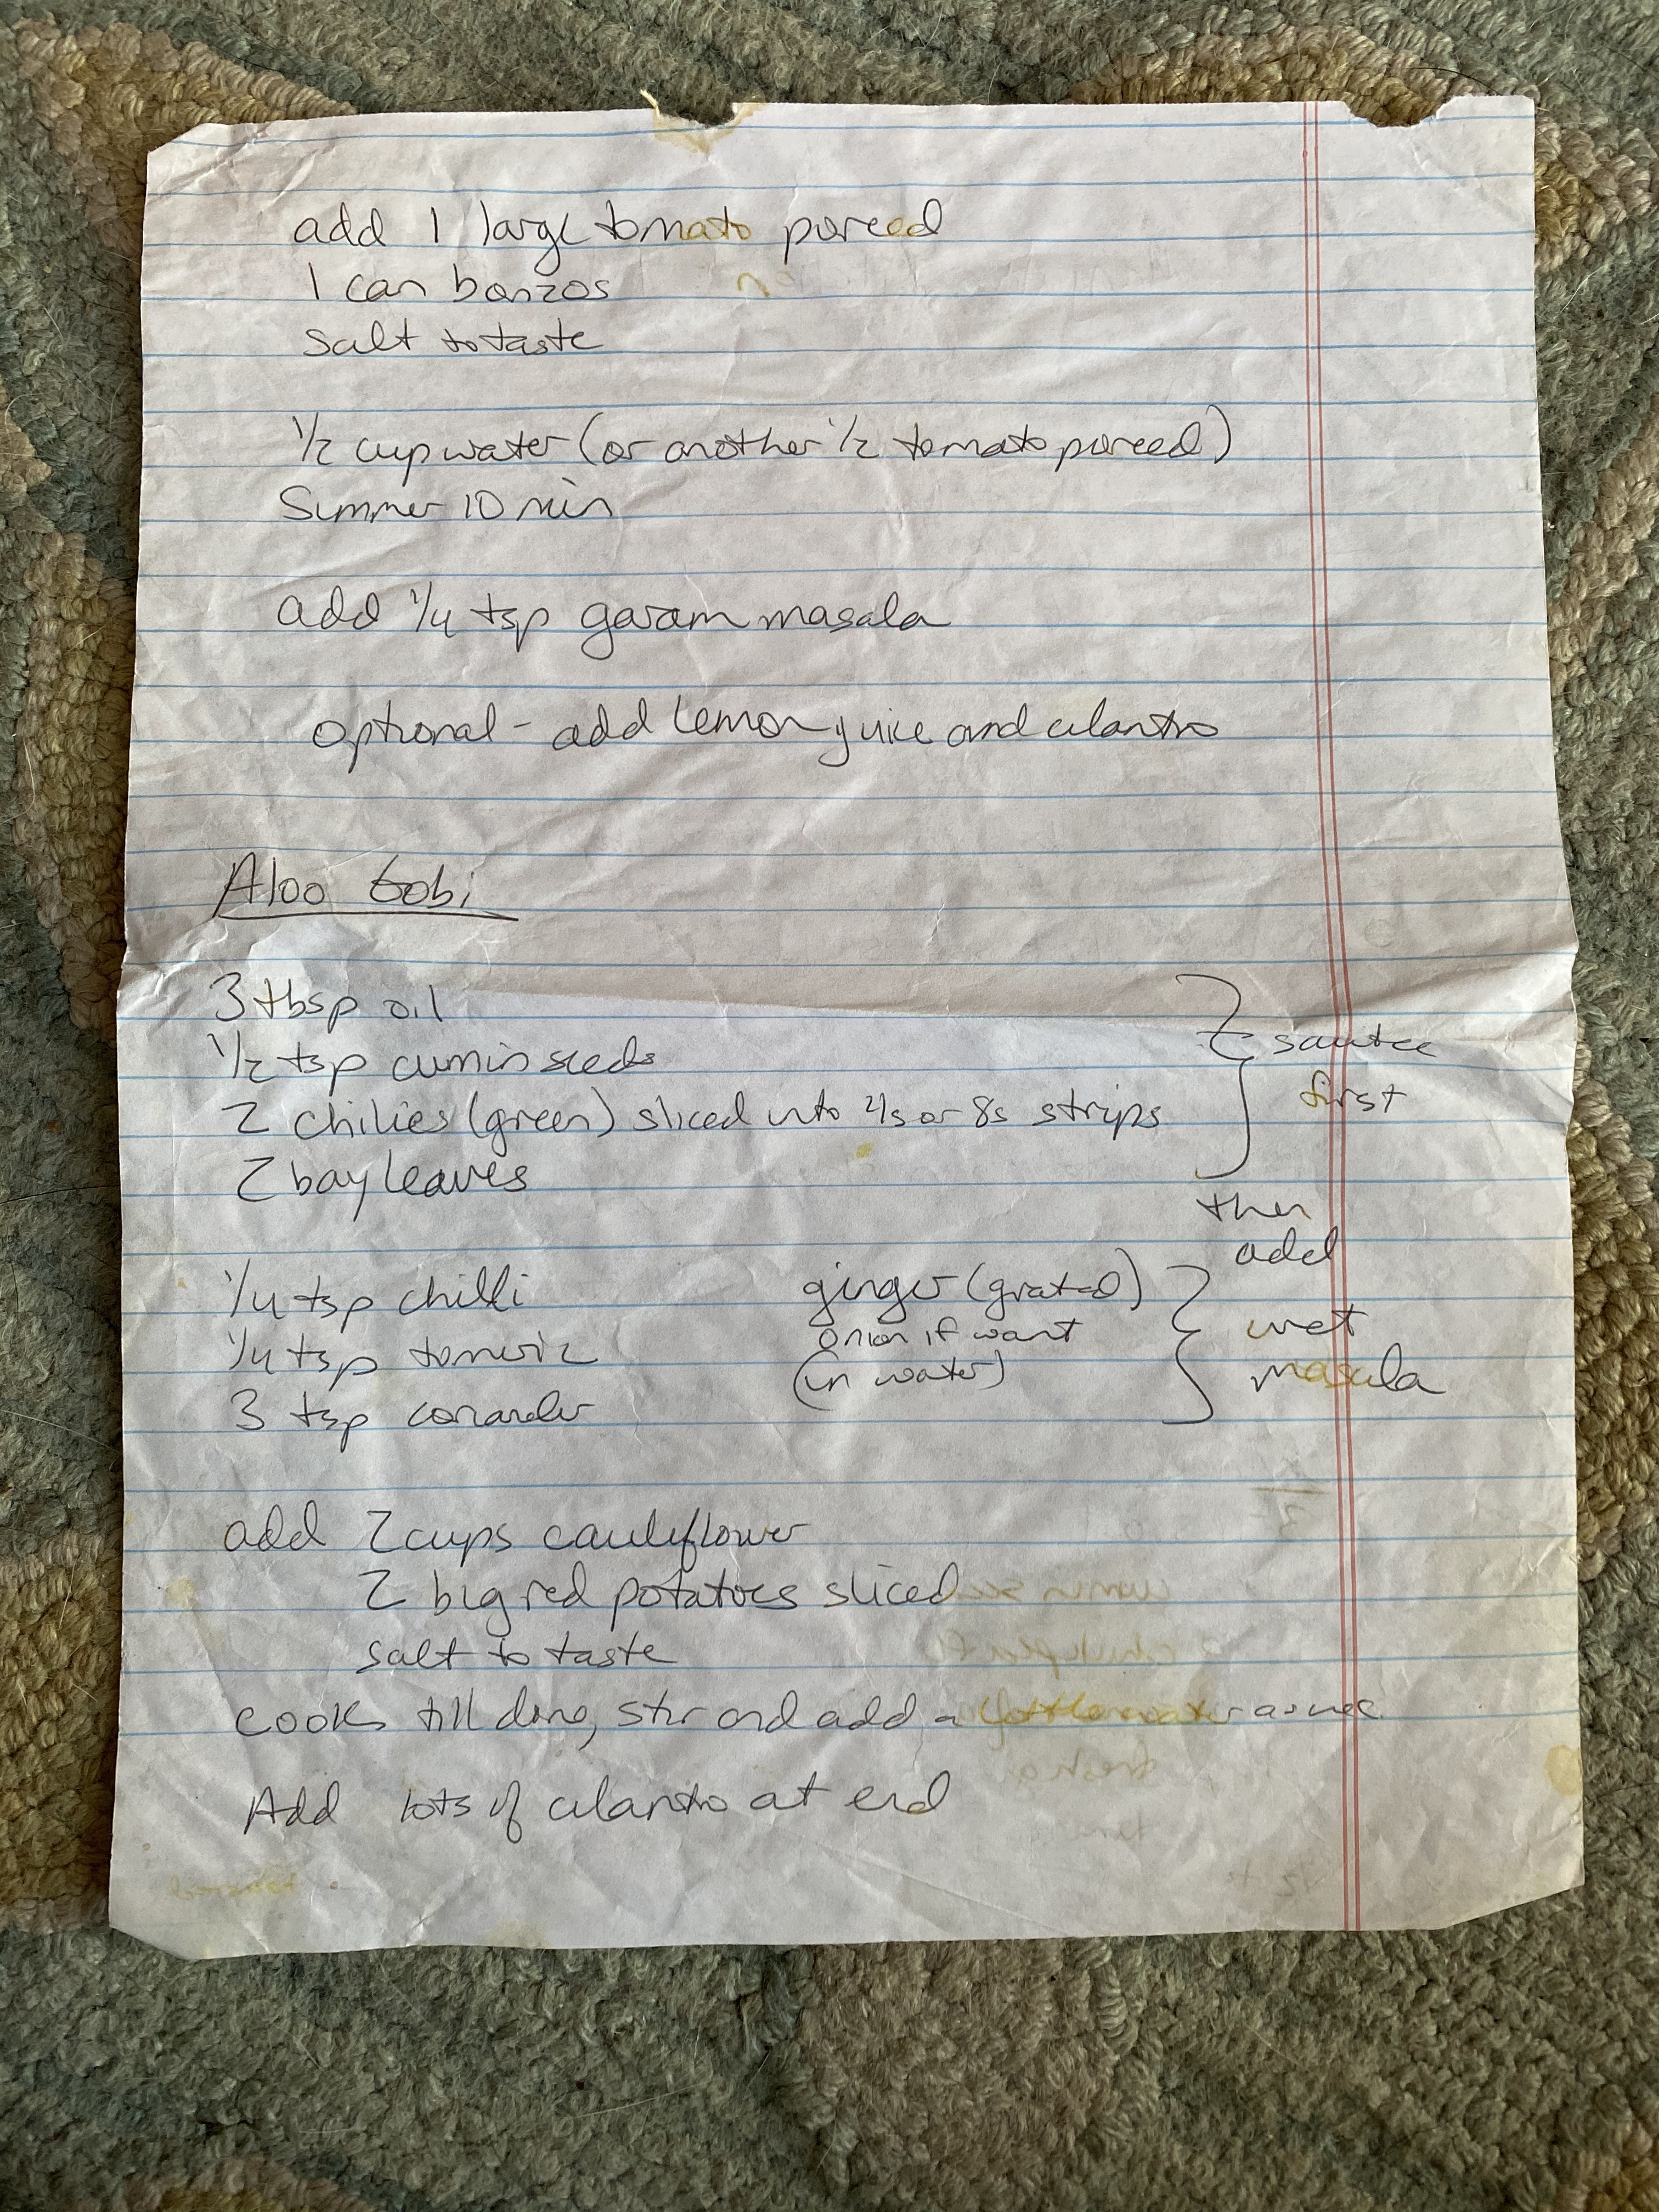 add 1 large tomato pureed
1 can banzos
salt to taste
1/2 cup water (or another 1/2 tomato pureed)
Simmer 10 min
add 1/4 tsp garam masala
optional - add lemon juice and cilantro
Aloo Gobi
3 tbsp oil
1/2 tsp cumin seeds
2 chilies (green) sliced into 4s or 8s strips
2 bay leaves
sautee
first
then
add
1/4 tsp chilli
1/4 tsp tumeric
3 tsp coriander
ginger (grated)
onion if want
(in water)
wet
masala
add 2 cups cauliflower
2 big red potatoes sliced
salt to taste
cook till done, stir and add a little water as nec
Add lots of cilantro at end